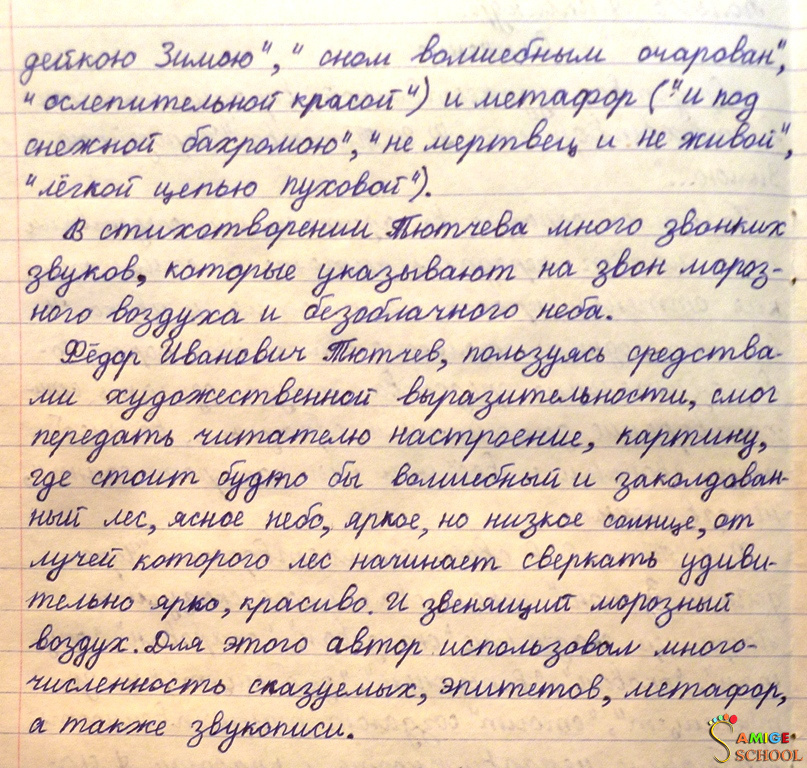 дейкою Зимою", "сном волшебным очарован",
"ослепительной красой") и метафор ("и под
снежной бахромою", "не мертвец и не живой",
"лёгкой цепью пуховой").
В стихотворении Тютчева много звонких
звуков, которые указывают на звон мороз-
ного воздуха и безоблачного неба.
Фёдор Иванович Тютчев, пользуясь средства-
ми художественной выразительности, смог
передать читателю настроение, картину,
где стоит будто бы волшебный и заколдован-
ный лес, ясное небо, яркое, но низкое солнце, от
лучей которого лес начинает сверкать удиви-
тельно ярко, красиво. И звенящий морозный
воздух. Для этого автор использовал много-
численность сказуемых, эпитетов, метафор,
а также звукописи.
SAMIGE
SCHOOL